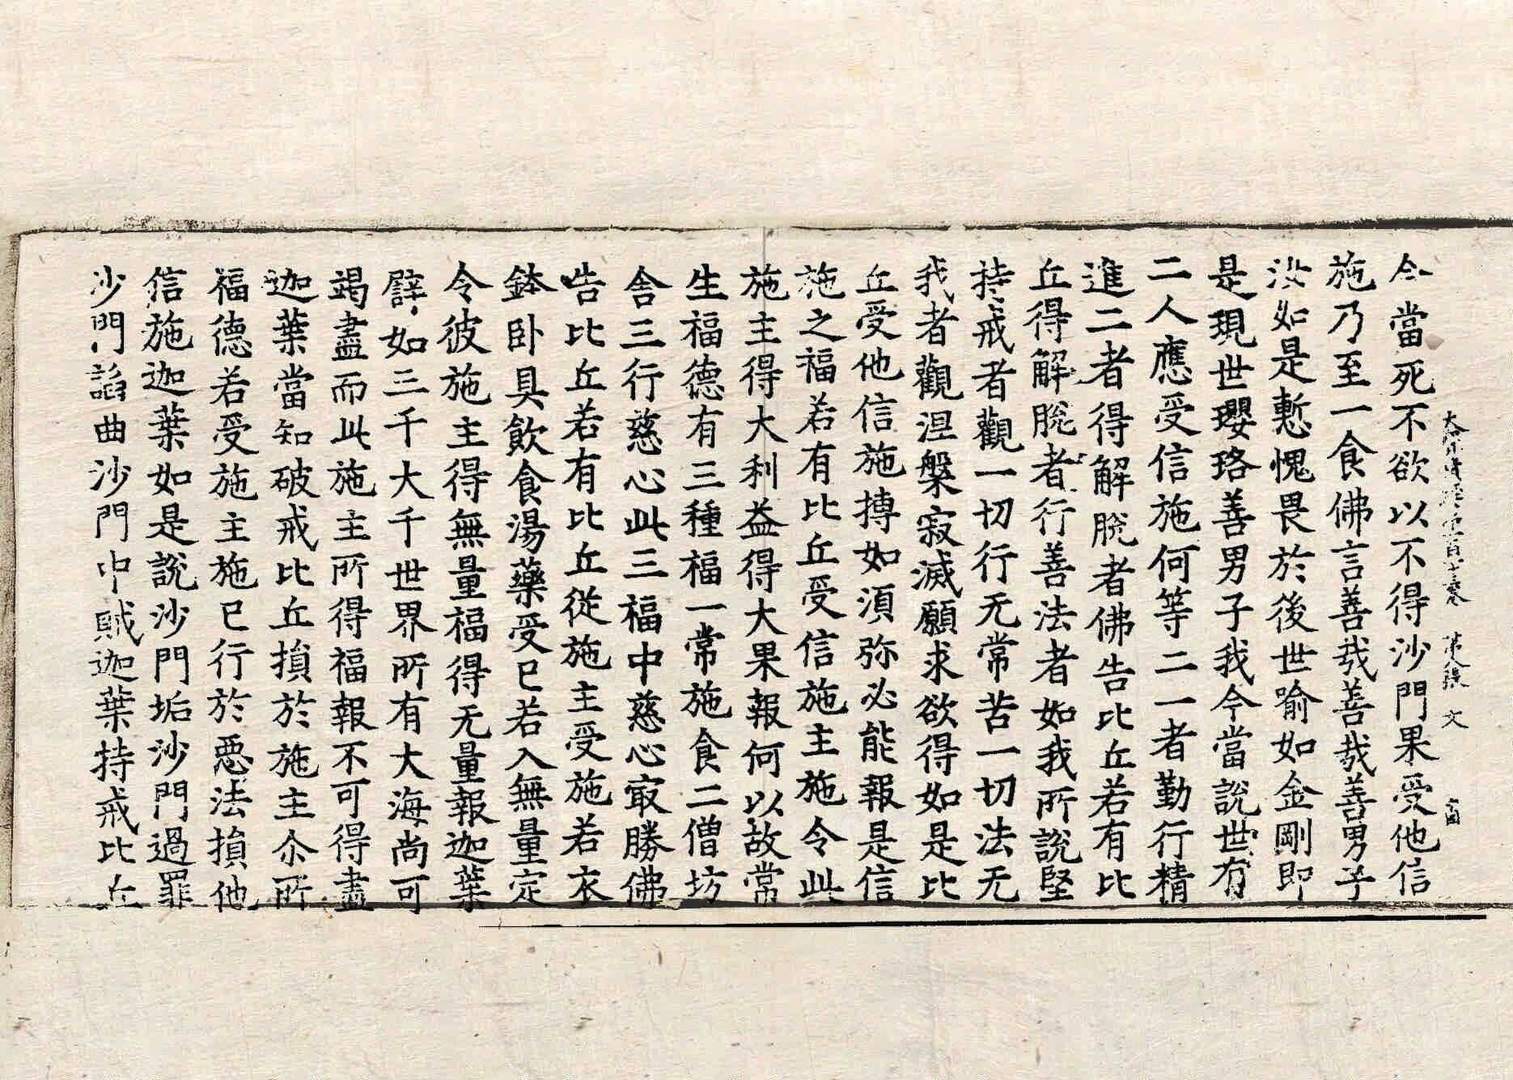 大寶積經第一百十三卷 第八張 文
今當死不欲以不得沙門果受他信
施乃至一食佛言善哉善哉善男子
汝如是慙愧畏於後世喻如金剛即
是現世瓔珞善男子我今當說世有
二人應受信施何等二一者勤行精
進二者得解脫者佛告比丘若有比
丘得解脫者行善法者如我所說堅
持戒者觀一切行无常苦一切法无
我者觀涅槃寂滅願求欲得如是比
丘受他信施摶如須弥必能報是信
施之福若有比丘受信施主施令此
施主得大利益得大果報何以故常
生福德有三種福一常施食二僧坊
舍三行慈心此三福中慈心㝡勝佛
告比丘若有比丘從施主受施若衣
鉢卧具飲食湯藥受已若入無量定
令彼施主得無量福得无量報迦葉
譬如三千大千世界所有大海尚可
竭盡而此施主所得福報不可得盡
迦葉當知破戒比丘損於施主尒所
福德若受施主施已行於惡法損他
信施迦葉如是說沙門垢沙門過罪
沙門諂曲沙門中賊迦葉持戒比丘